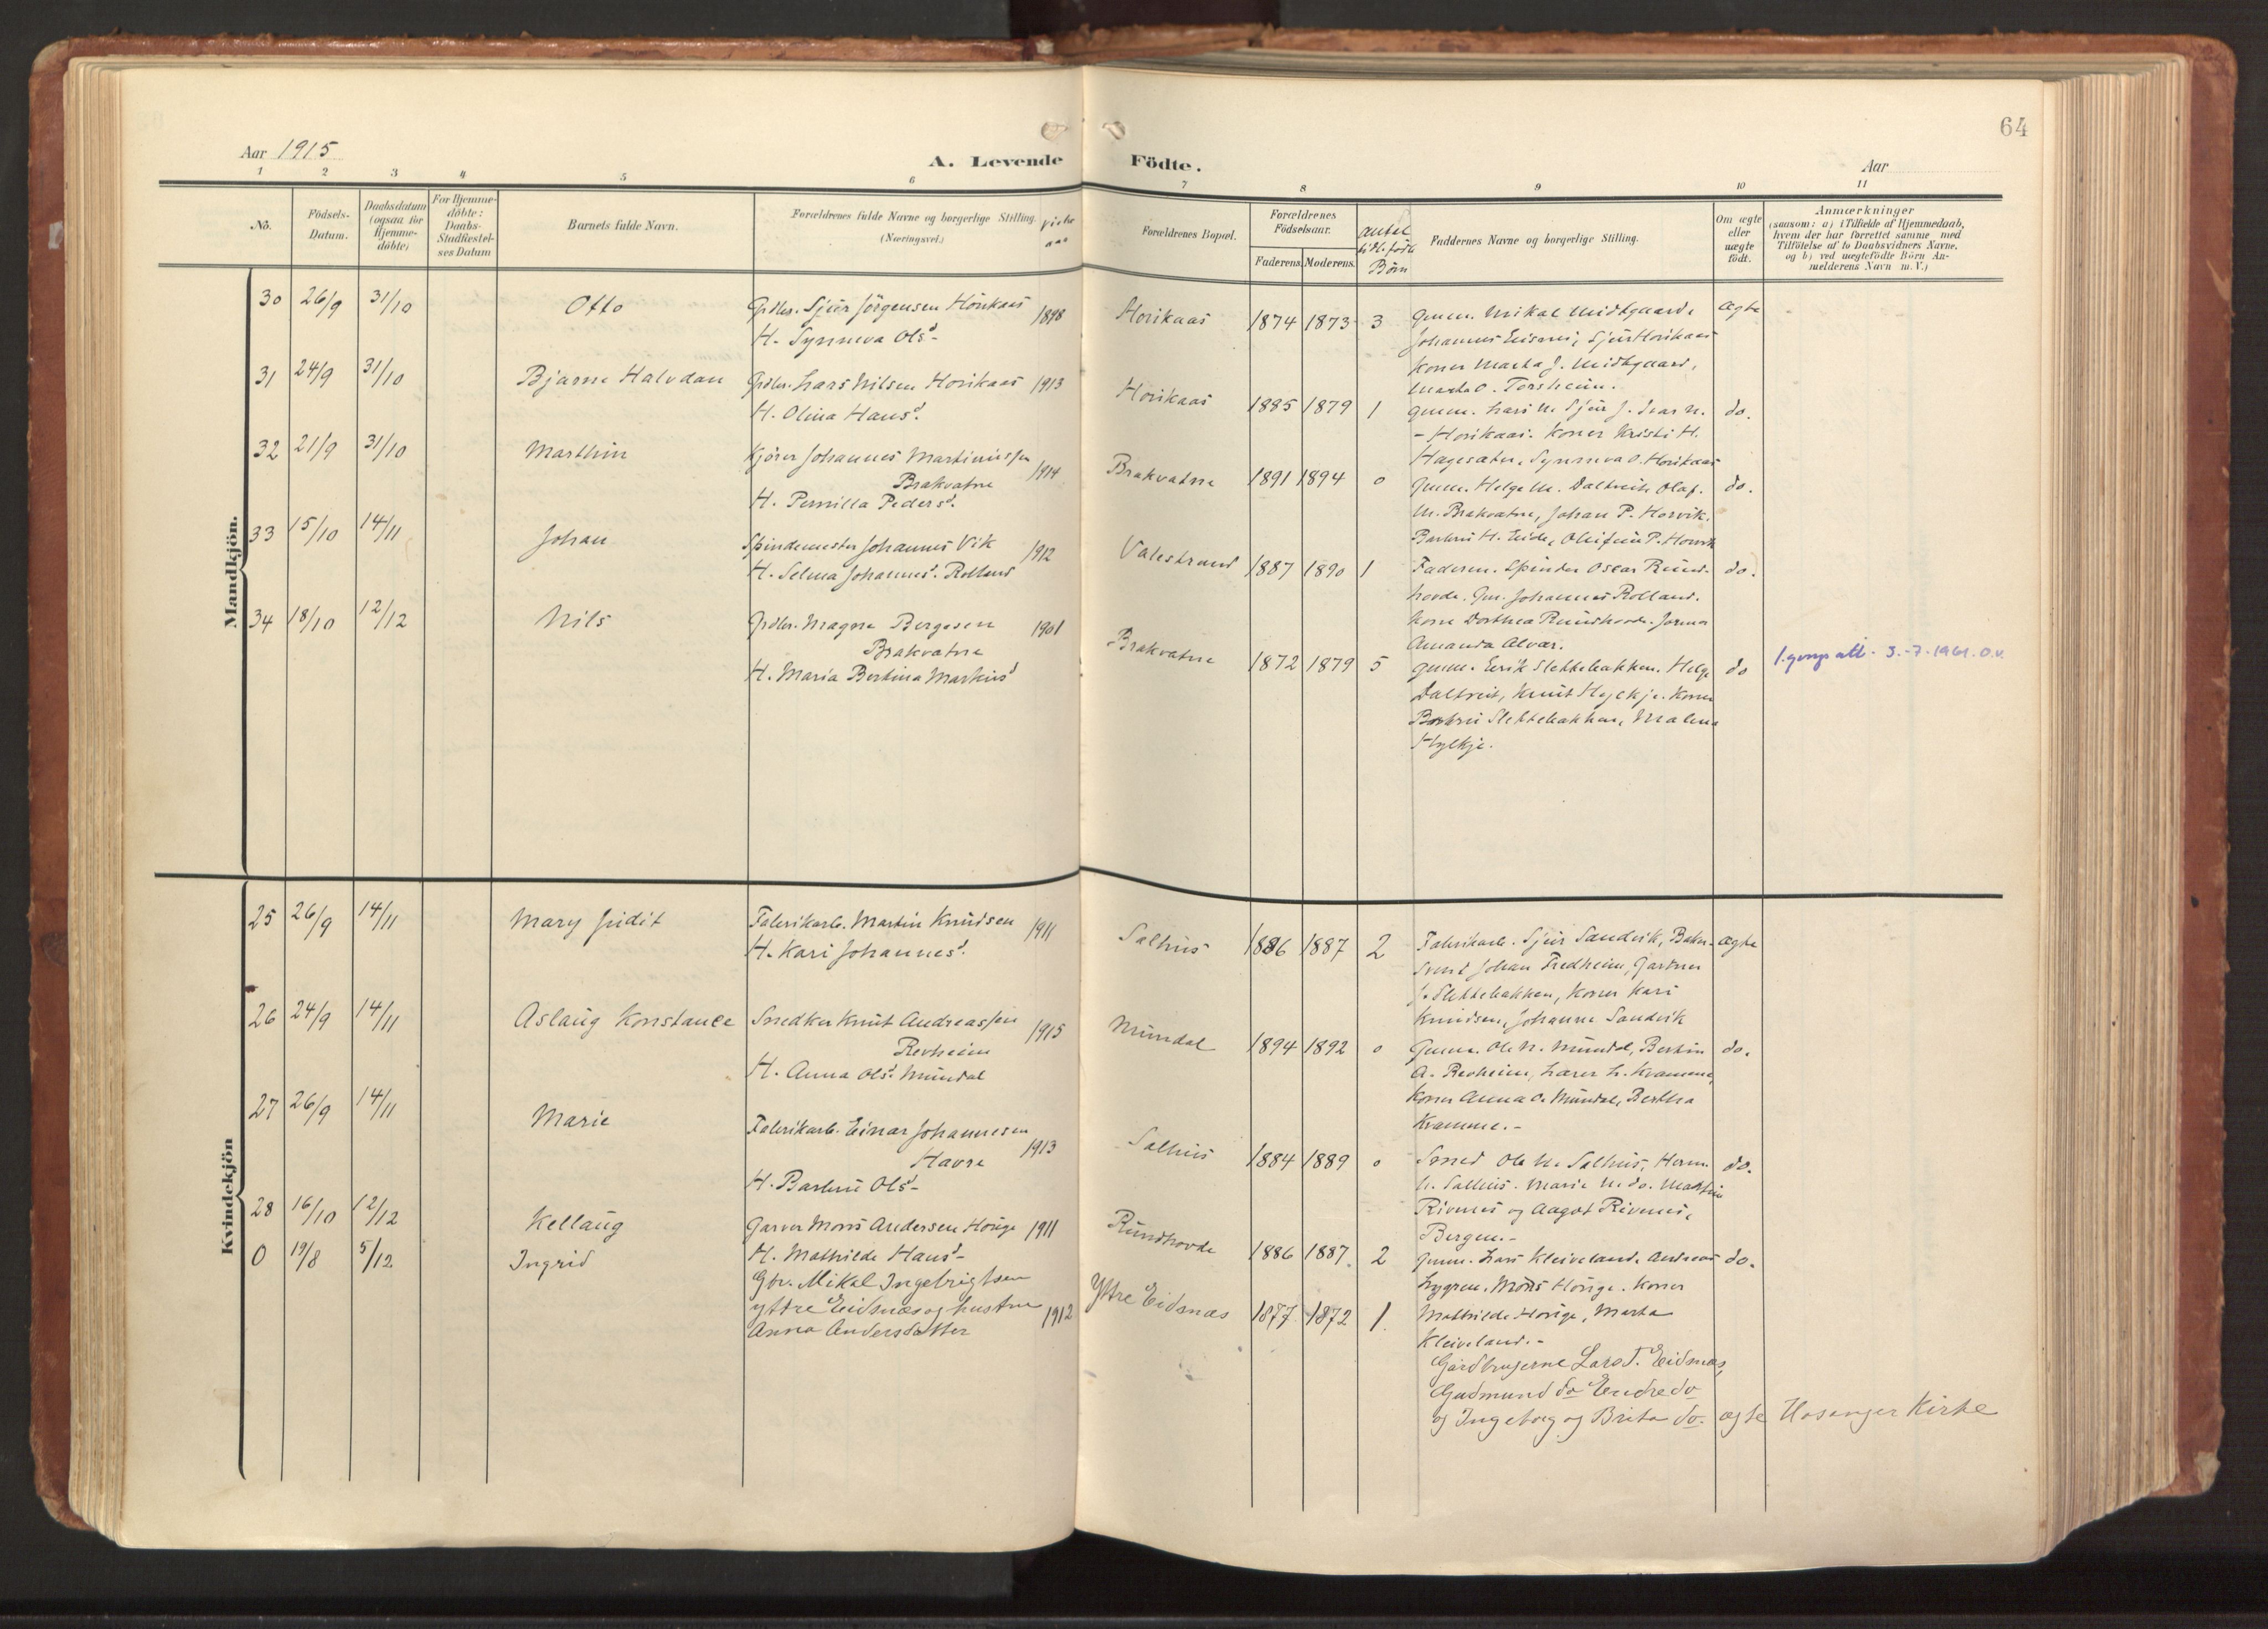 64
Aar 1915
A. Levende Födte.
Aar
1 2 3 4 5 6 7 8 9 10 11
No.
Födsels-
Datum.
Daabsdatum
(ogsaa for
Hjemme-
döbte)
For Hjemme-
döbte:
Daabs-
Stadfæstel-
ses Datum
Barnets fulde Navn.
Forældrenes fulde Navne og borgerlige Stilling.
(Næringsvei.)
Forældrenes Bopæl.
Forældrenes
Födselsaar.
Faderens. Moderens.
antal
Börn
Faddernes Navne og borgerlige Stilling.
Om ægte
eller
uægte
født.
Anmærkninger
(saasom: a) i Tilfælde af Hjemmedaab,
hvem der har forrettet samme med
Tilföielse af to Daabsvidners Navne,
og b) ved uægtefödte Börn An-
melderens Navn m. V.)
Mandkjön.
30 26/9 31/10 Otto
Grdbr. Sjur Jörgensen Horikaas 1898
H. Synneva Olsd-
Horikaas 1874 1873 3
Gmm. Mikal Midtgaard,
Johannes Eisnes, Sjur Horikaas
Koner Marta J. Midtgaard,
Marta O. Torsheim.
ægte
31 24/9 31/10 Bjarne Halvdan
Grdbr. Lars Nilsen Horikaas 1913
H. Olina Hansd.
Horikaas 1885 1879 1
Gmm. Lars N. Sjur J. Ivar N.
- Horikaas. Koner Kristi H.
Hagesæter, Synneva O. Horikaas
do.
32 21/9 31/10 Marthin
Kjörer Johannes Martinussen
Brakvatne 1914
H. Pernilla Pedersd.
Brakvatne 1891 1894 0
Gmm. Helge M. Daltveit, Olaf.
M. Brakvatne, Johan P. Horvik.
Barbru H. Eide, P. Horvik
do.
33 15/10 14/11 Johan
Spindemester Johannes Vik 1912
H. Selma Johannesd. Rolland
Valestrand 1887 1890 1
Faderen. Spinder Oscar Rund-
hovde. Gm. Johannes Rolland.
Kone Dorthea Rundhovde. Jomfru
Amanda Alvær.
do.
34 18/10 12/12 Nils
Grdbr. Magne Börgesen 1901
Brakvatne
H. Maria Bertina Markusd
Brakvatne 1872 1879 5
Gmm. Eerik Slettebakken. Helge
Daltveit, Knut Hylkje. Koner
Barbru Slettebakken, Malena
Hylkje.
do
1. gangs att. 3.-7.1961. O.V.
Kvindekjön
25 26/9 14/11 Mary Judit
Fabrikarb. Martin Knudsen 1911
H. Kari Johannesd.
Salhus 1886 1887 2
Fabrikarb. Sjur Sandvik, Baker-
svend Johan Fredheim, Gartner
J. Slettebakken, Koner Kari
Knudsen, Johanne Sandvik
ægte
26 24/9 14/11 Aslaug Konstance
Snedker Knut Andreassen 1915
Revheim
H. Anna Olsd. Mundal
Mundal 1894 1892 0
Gmm. Ole N. Mundal, Bertin
A. Revheim, Lærer L. Kvamme,
Koner Anna O. Mundal, Bertha
Kvamme.-
do.
27 26/9 14/11 Marie
Fabrikarb. Einar Johannesen
Havre 1913
H. Barbru Olsd-
Salhus 1884 1889 0
Smed Ole N. Salhus, Herm.
N. Salhus. Marie N. do. Martin
Rivenes og Aagot Rivenes,
Bergen.-
do.
28 16/10 12/12 Kellaug
Garver Mons Andersen Horige 1911
H. Mathilde Hansd-
Rundhovde 1886 1887 2
Gmm. Lars Kleiveland, Andreas
Lygren. Mons Horige. Koner
Mathilde Horige, Marta
Kleiveland.-
do.
0 19/8 5/12 Ingrid
Gbr. Mikal Ingebrigtsen
ytre Eidsnæs og hustru 1912
Anna Andersdatter
Ytre Eidsnæs 1877 1872 1
Gårdbrugerne Lars T. Eidsnæs,
Gudmund do Endre do
og Ingeborg og Brita do.
ægte
Hosanger Kirke